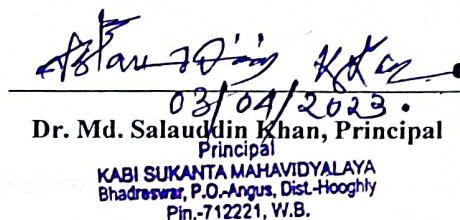 03/04/2023.
Dr. Md. Salauddin Khan, Principal
Principal
KABI SUKANTA MAHAVIDYALAYA
Bhadreswar, P.O.-Angus, Dist.-Hooghly
Pin.-712221, W.B.